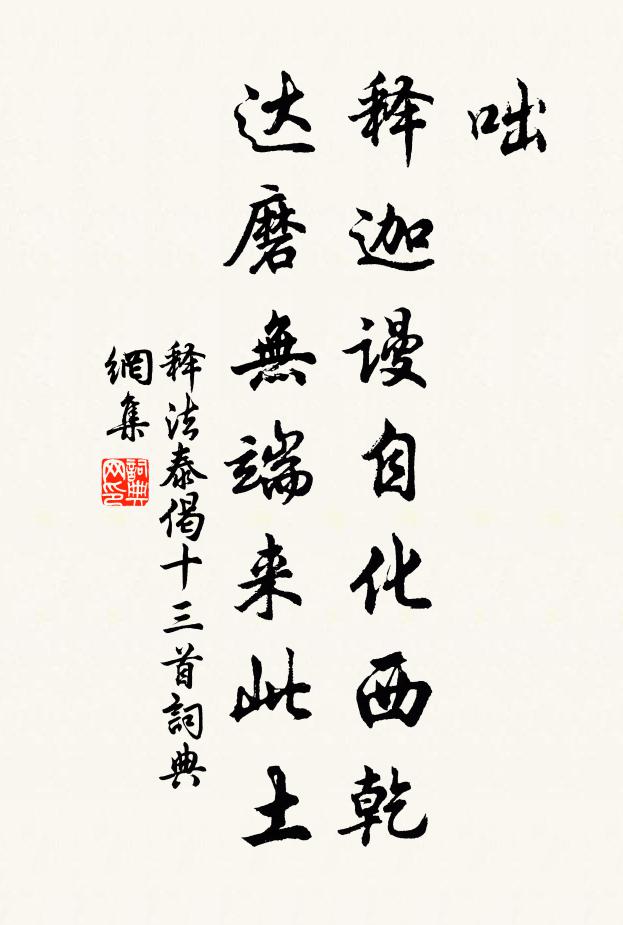 咄
释迦谩自化西乾
达磨無端来此土
释法泰偈十三首詞典
網集
詞典网印